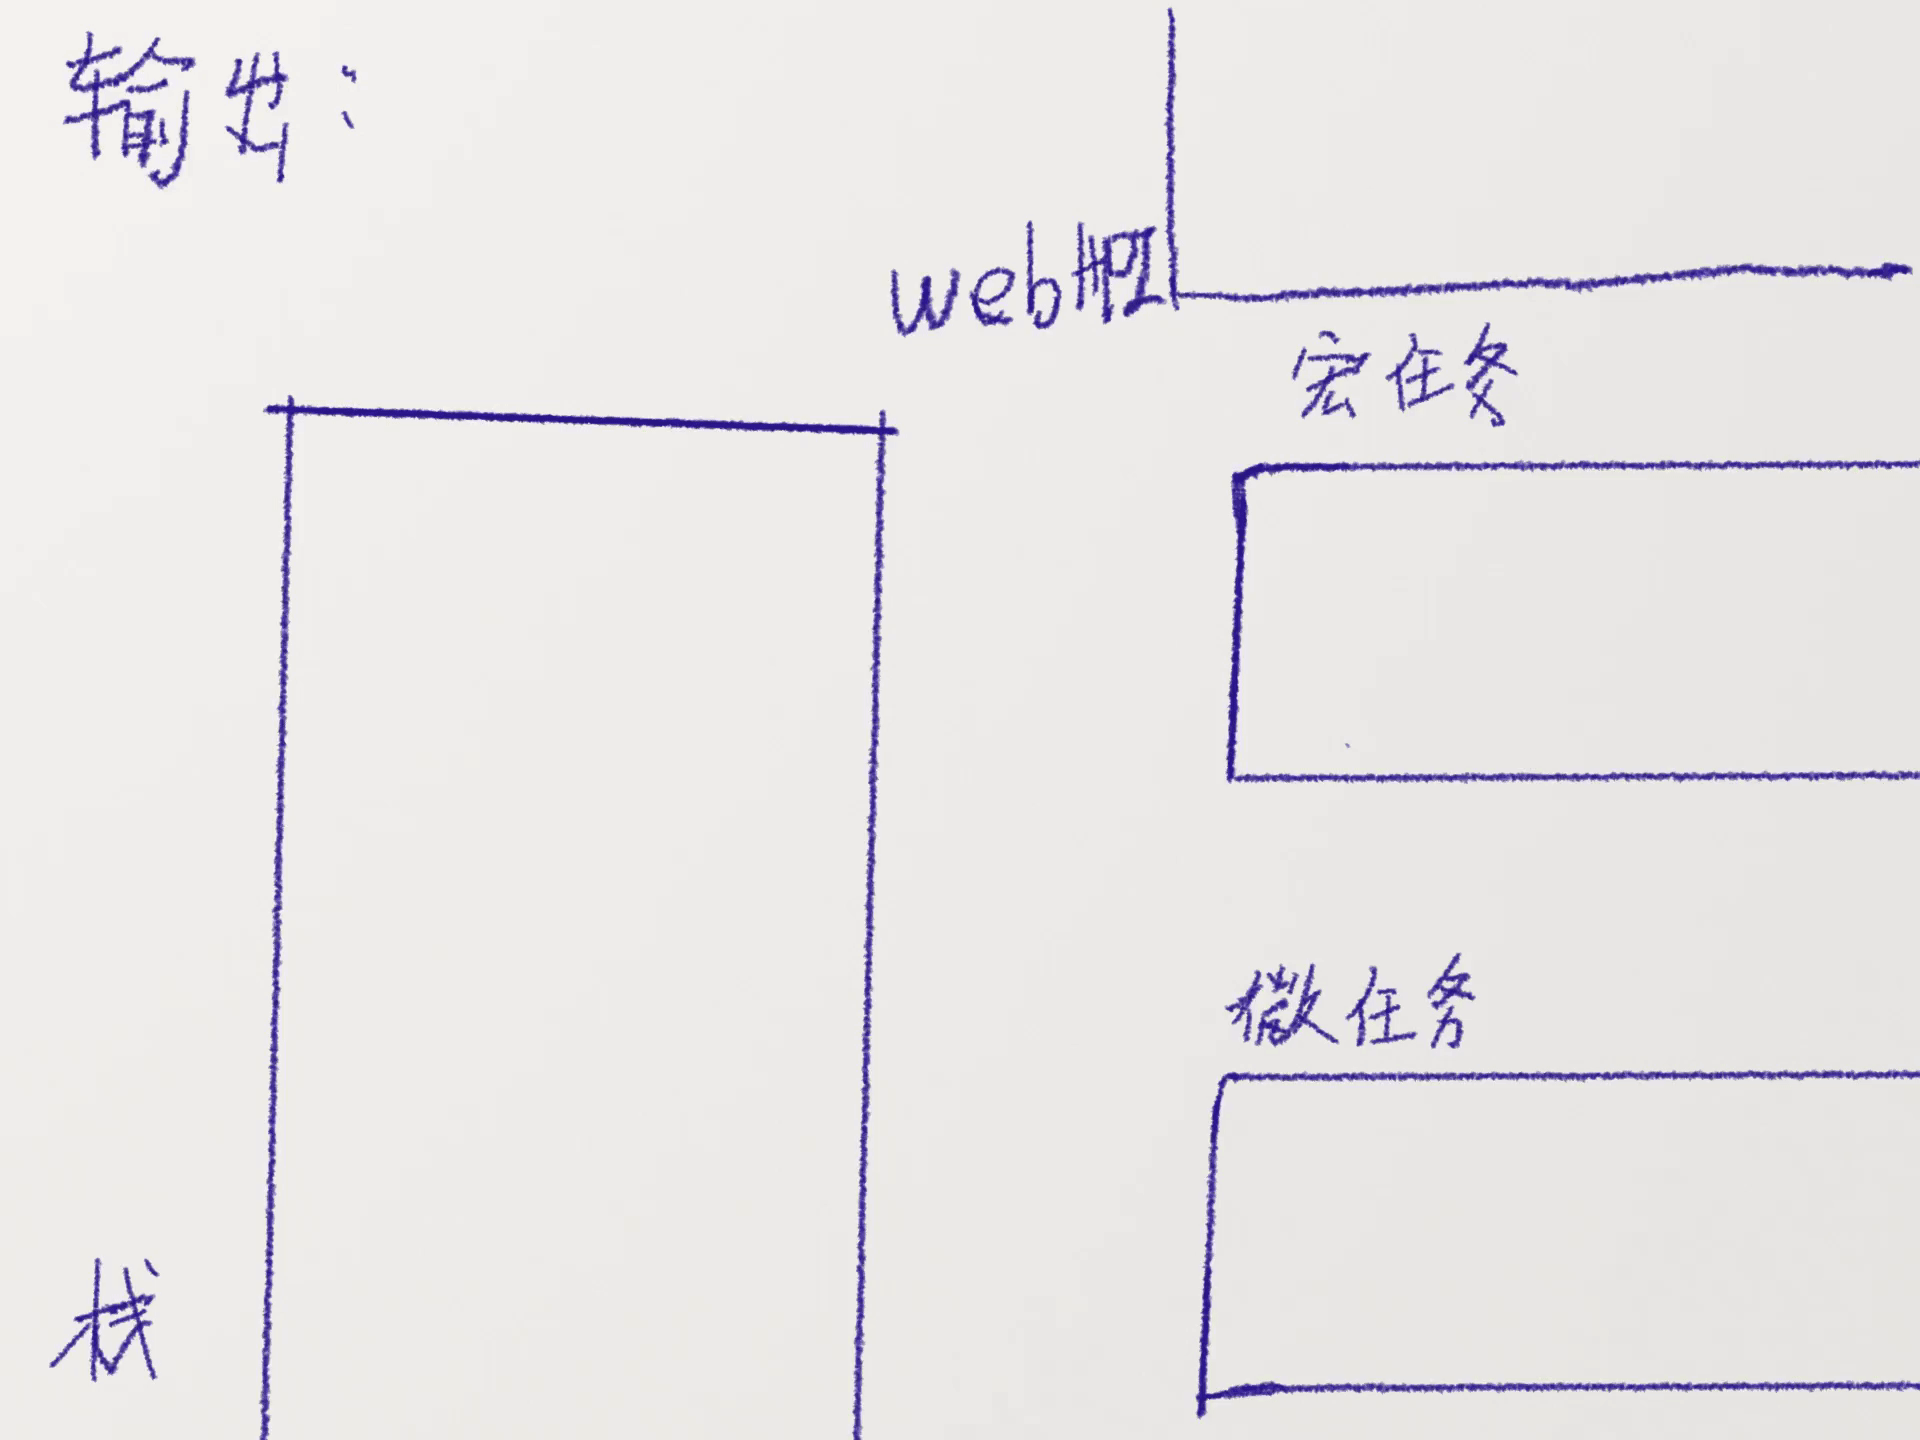 输出：
webAPI
宏任务
微任务
栈